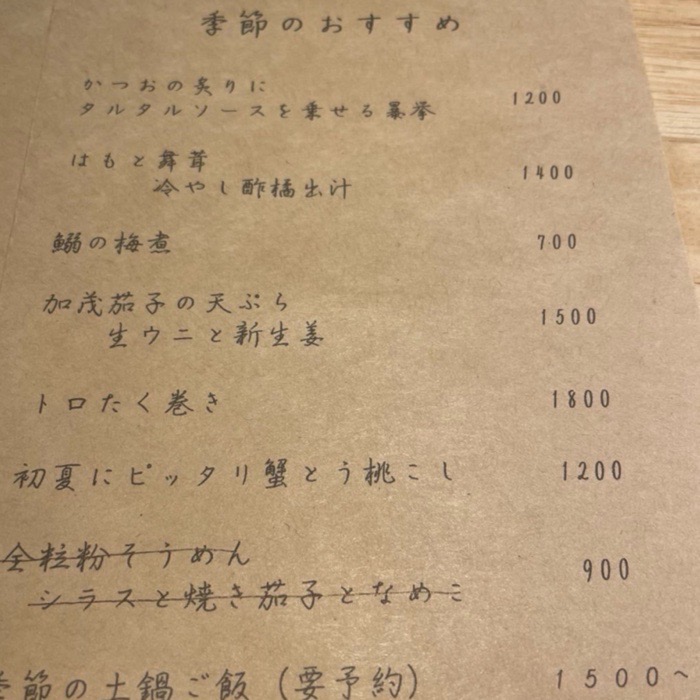 季節のおすすめ
かつおの炙りに
タルタルソースを乗せる暴挙 1200
はもと舞茸
冷やし酢橘出汁 1400
鰯の梅煮 700
加茂茄子の天ぷら
生ウニと新生姜 1500
トロたく巻き 1800
初夏にピッタリ蟹とう桃こし 1200
全粒粉そうめん
シラスと焼き茄子となめこ 900
季節の土鍋ご飯(要予約) 1500~